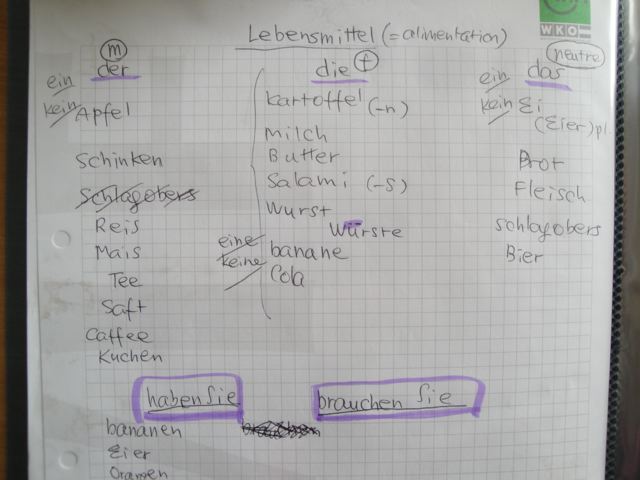 WKO
Lebensmittel (= alimentation)
m
der
ein
kein
Apfel
Schinken
Schlagobers
Reis
Mais
Tee
Saft
Caffee
Kuchen
f
die
Kartoffel (-n)
Milch
Butter
Salami (-s)
Wurst
Würste
eine
keine
banane
Cola
neutre
das
ein
kein
Ei
(Eier) pl.
Brot
Fleisch
schlagobers
Bier
haben Sie
brauchen Sie
bananen
Eier
Orangen